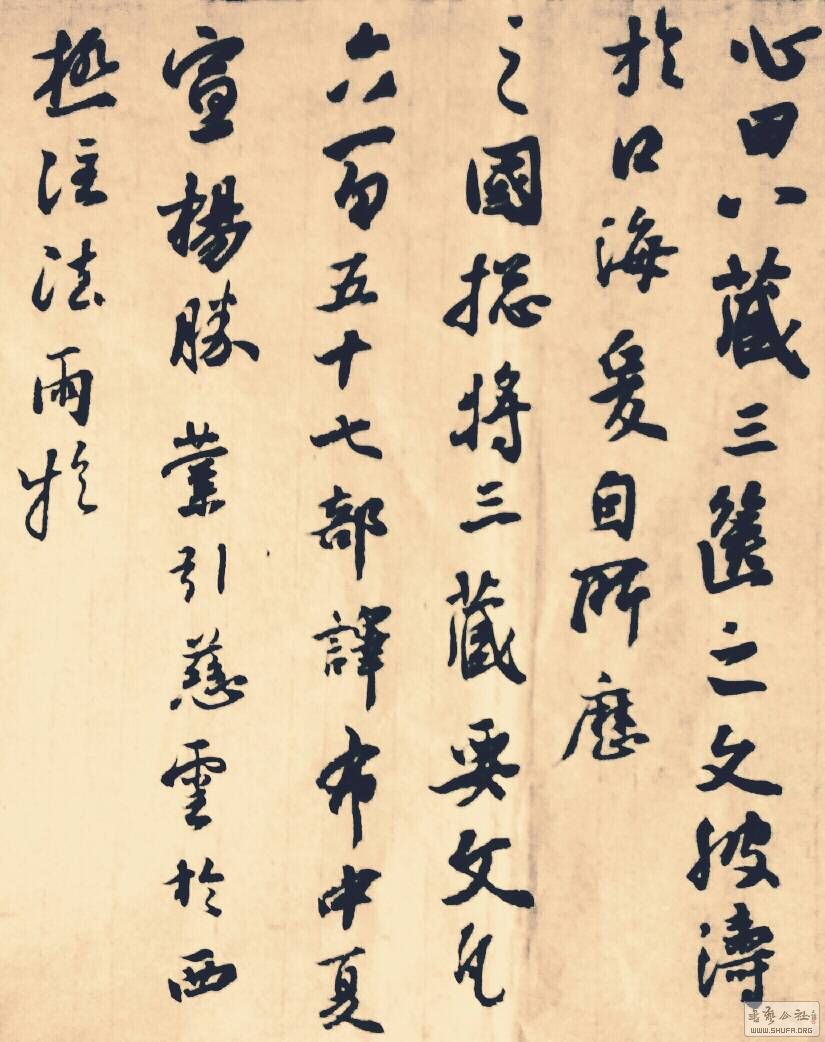 心田八藏三箧之文波濤
於口海爰自所歷
之國摠將三藏要文凡
六百五十七部譯布中夏
宣楊勝業引慈雲於西
極注法雨於
書藝公社
WWW.SHUFA.ORG